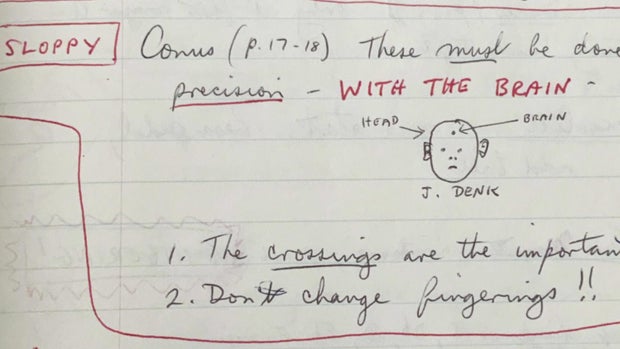 SLOPPY (p.17-18) These must be done
precision - WITH THE BRAIN -
HEAD BRAIN
J. DENK
1. The crossings are the importan
2. Don't change fingerings!!